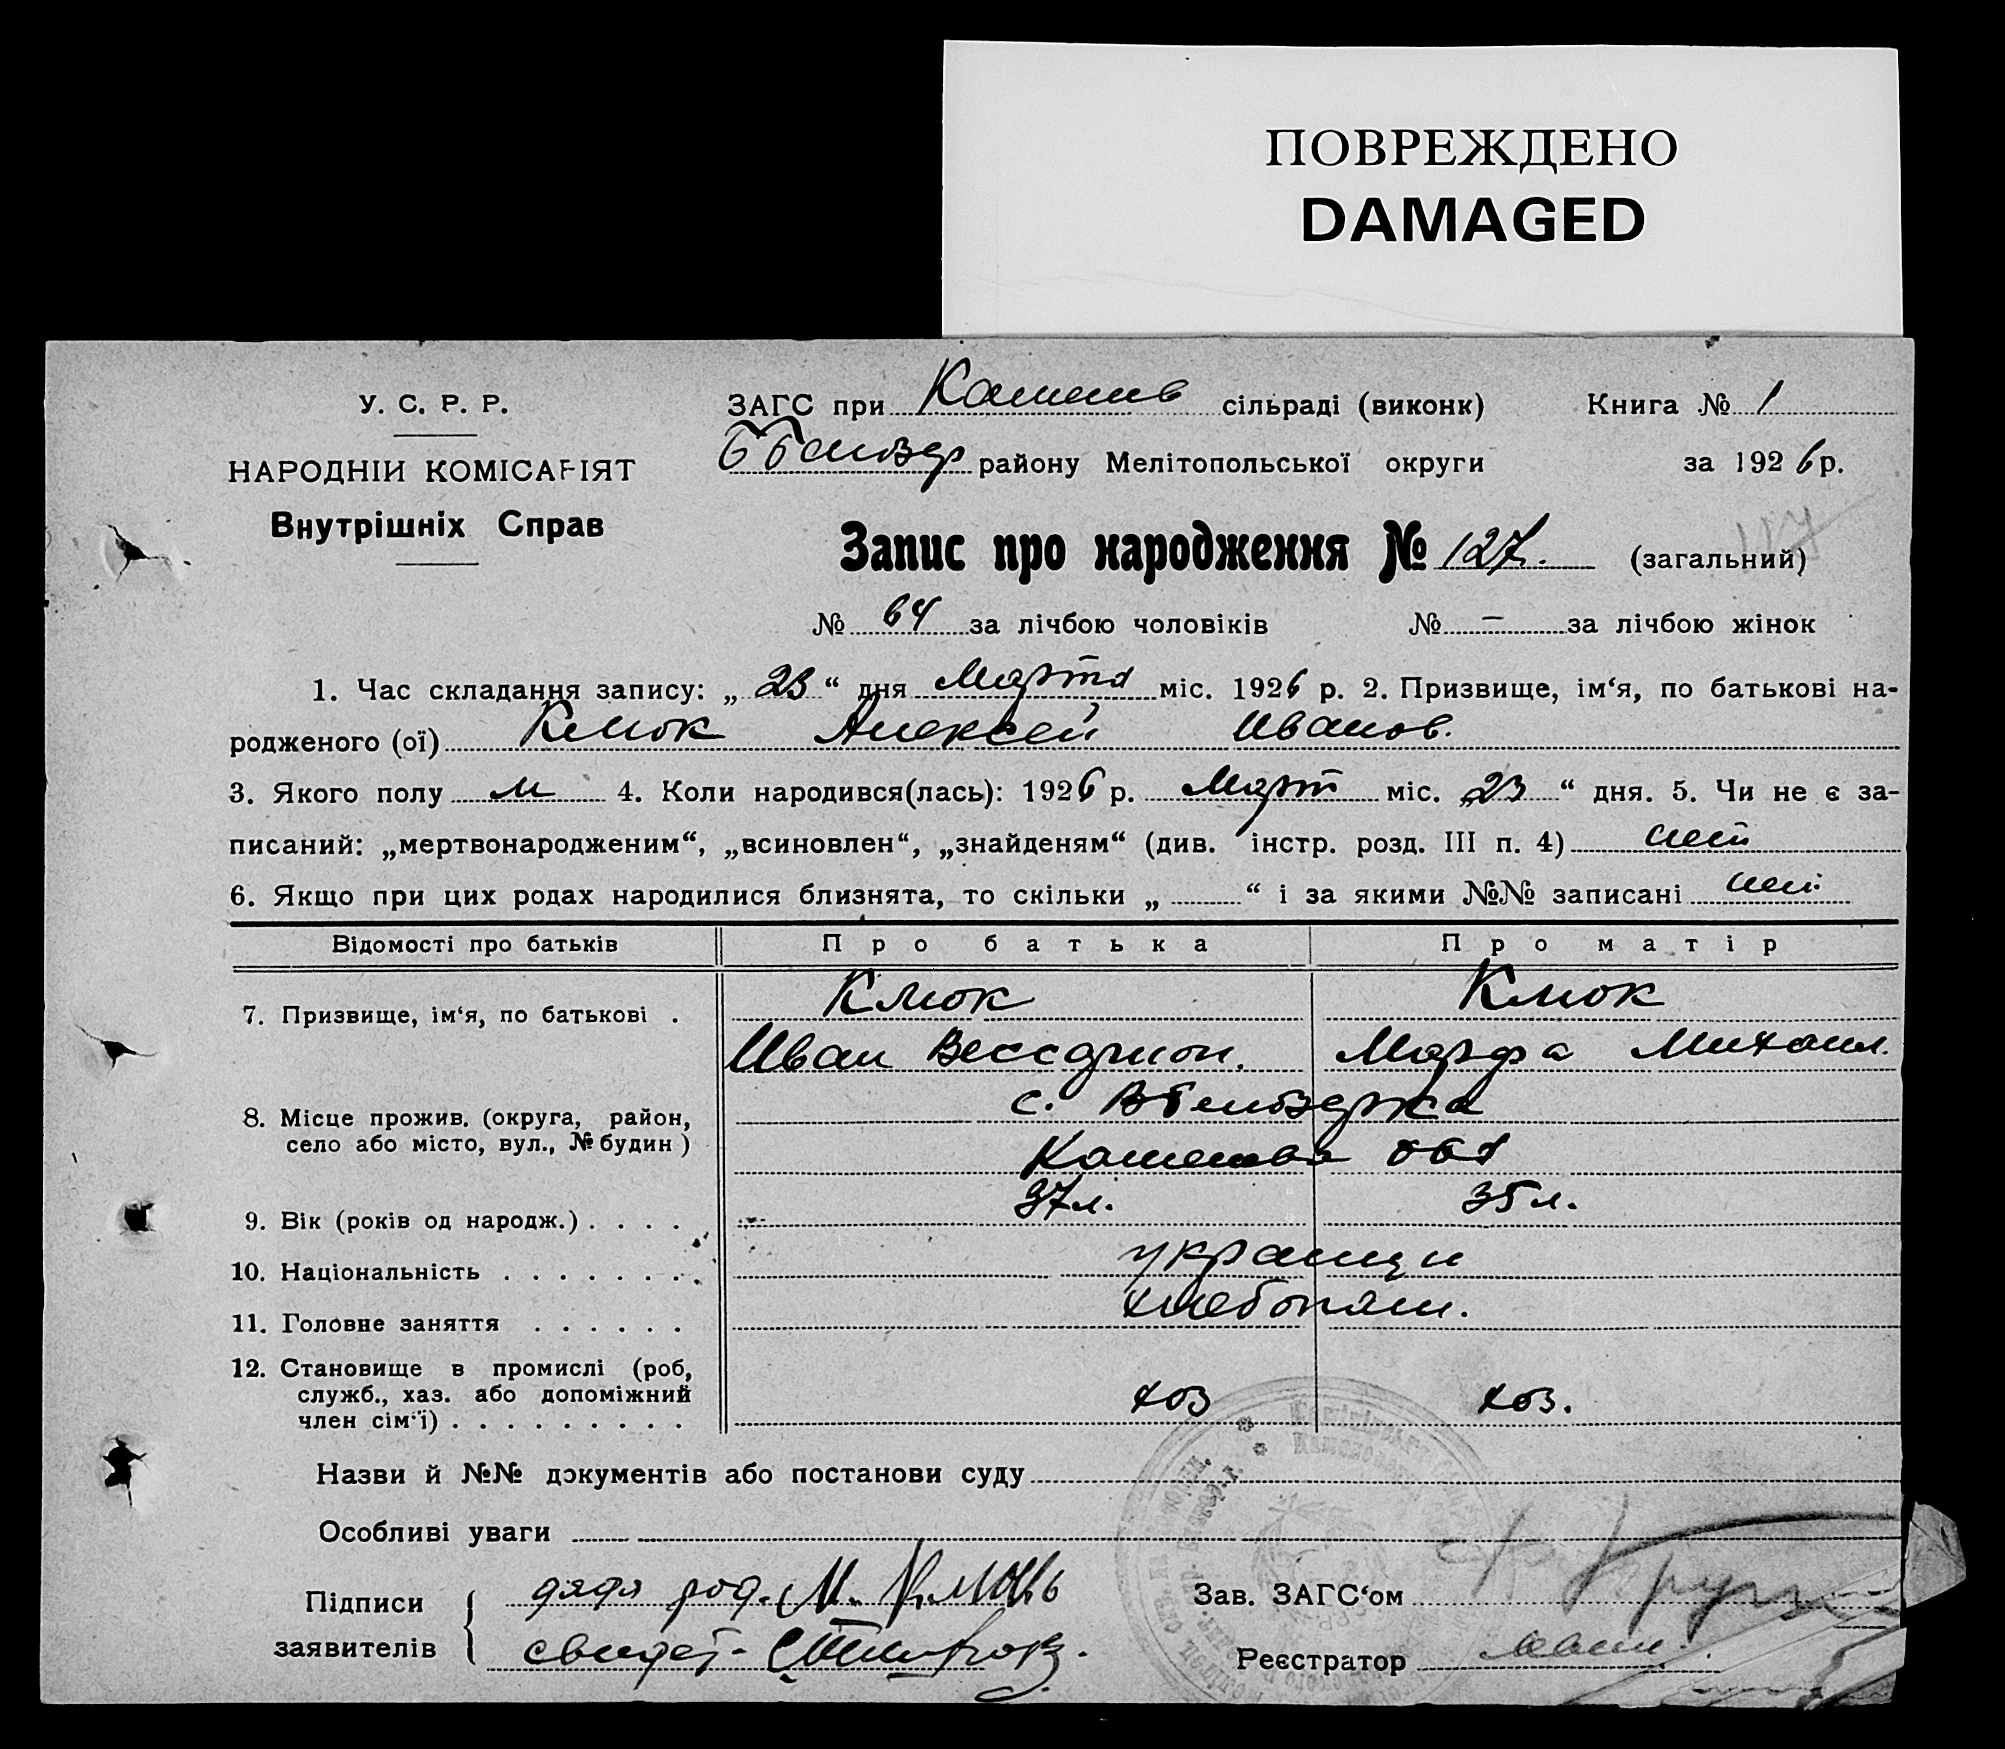 ПОВРЕЖДЕНО
DAMAGED
У. С. Р. Р.
НАРОДНІЙ КОМІСАРІЯТ
Внутрішніх Справ
ЗАГС при Каменев сільраді (виконк) Книга № 1
району Мелітопольської округи за 1926 р.
Запис про народження № 127. (загальний)
№ 64 за лічбою чоловіків № – за лічбою жінок
1. Час складання запису: „ 23 “ дня Марта міс. 1926 р. 2. Призвище, ім‘я, по батькові на-
родженого (ої) Клюк Алексей Иванов.
3. Якого полу м 4. Коли народився(лась): 1926 р. Март міс. „ 23 “ дня. 5. Чи не є за-
писаний: „мертвонародженим“, „всиновлен“, „знайденям“ (див. інстр. розд. III п. 4) нет
6. Якщо при цих родах народилися близнята, то скільки „ “ і за якими №№ записані нет
Відомості про батьків Про батька Про матір
7. Призвище, ім‘я, по батькові . Клюк Клюк
Иван Вессарион. Марфа Михаил.
8. Місце прожив. (округа, район,
село або місто, вул., № будин )
с.
9. Вік (років од народж.) . . . . 37 л. 35 л.
10. Національність . . . . . . . . украинци
11. Головне заняття . . . . . . хлебопаш.
12. Становище в промислі (роб,
служб., хаз. або допоміжний
член сім‘ї) . . . . . . . . . хоз хоз.
Назви й №№ документів або постанови суду
Особливі уваги
Підписи
заявителів
дядя род. М. Клюк
свидет-
Зав. ЗАГС‘ом
Реєстратор